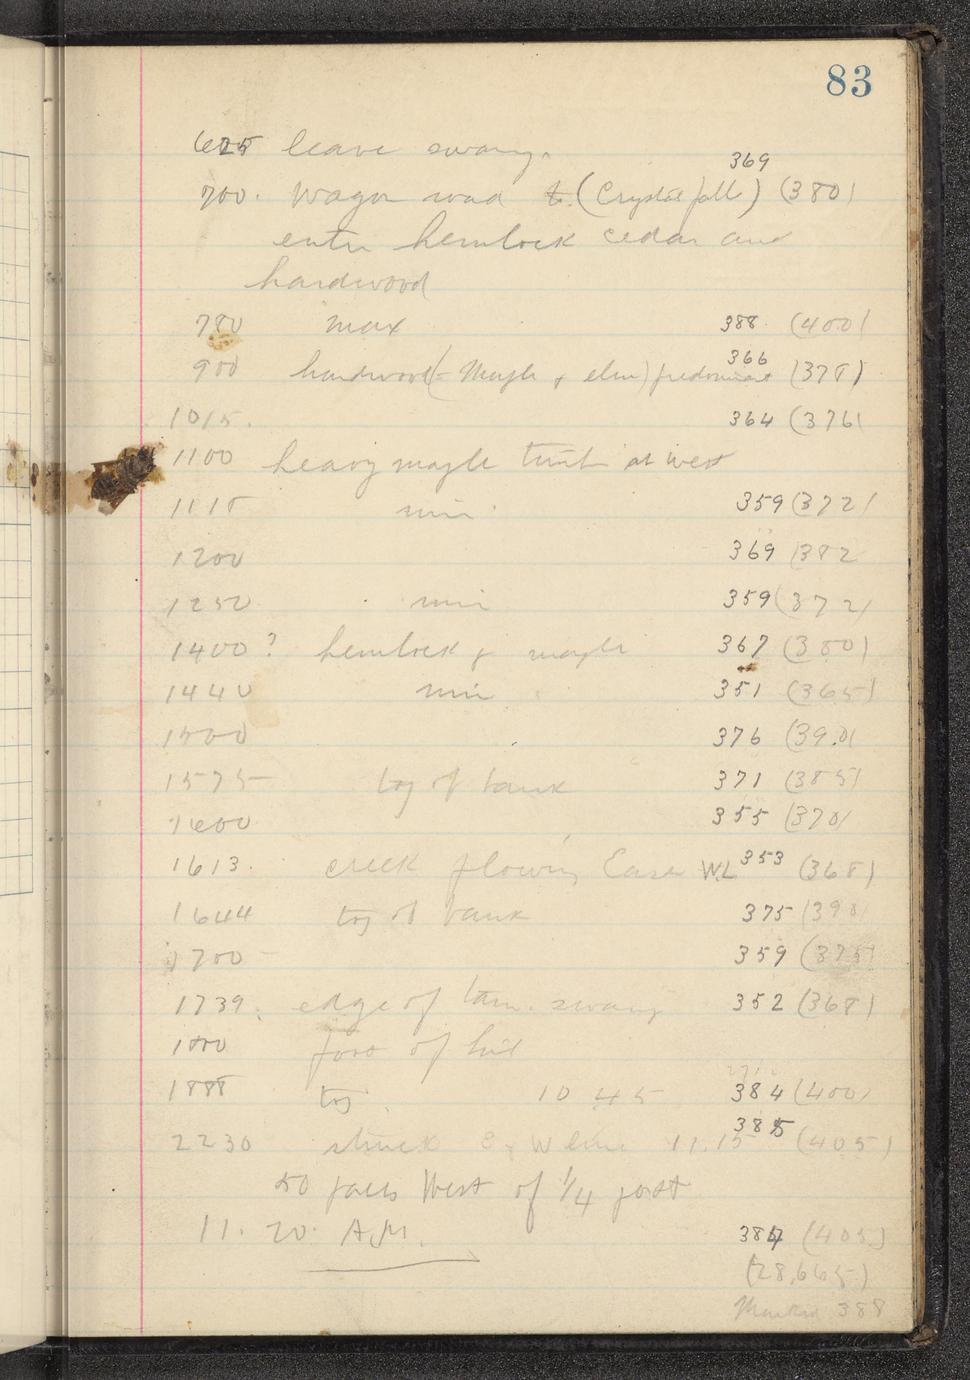 83
625 leave swamp.
369
700. Wagon road to (Crystal falls) (380)
enter hemlock cedar and
hardwood
780 max 388 (400)
366
900 hardwood (- Maple & elm) predominant (378)
1015. 364 (376)
1100 heavy maple timb at west
1115 min 359 (372)
1200 369 (382
1250 min 359 (372)
1400? hemlock & maple 367 (380)
1440 min 351 (365)
1500 376 (390)
1575 top of bank 371 (385)
1600 355 (370)
1613. creek flowing East WL 353 (368)
1644 top of bank 375 (390)
1700 359 (375)
1739. edge of tam. swamp 352 (368)
1800 foot of hill
1888 top. 10 45 384 (400)
385
2230 struck E & W line 11.15 (405)
50 paces West of 1/4 post
11. 20. A.M. 384 (405)
(28.665)
Marked 388